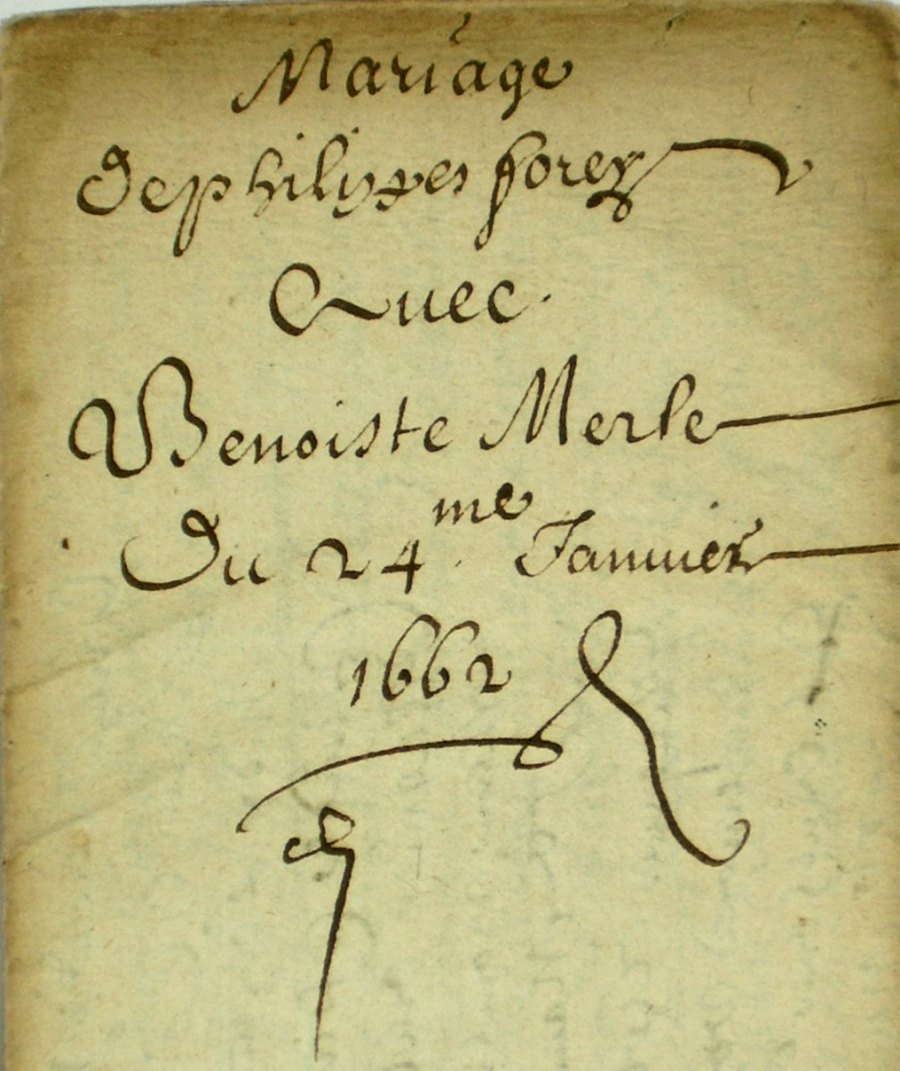 Mariage
De philippes forez
Avec
Benoiste Merle
Du 24.me Januier
1662